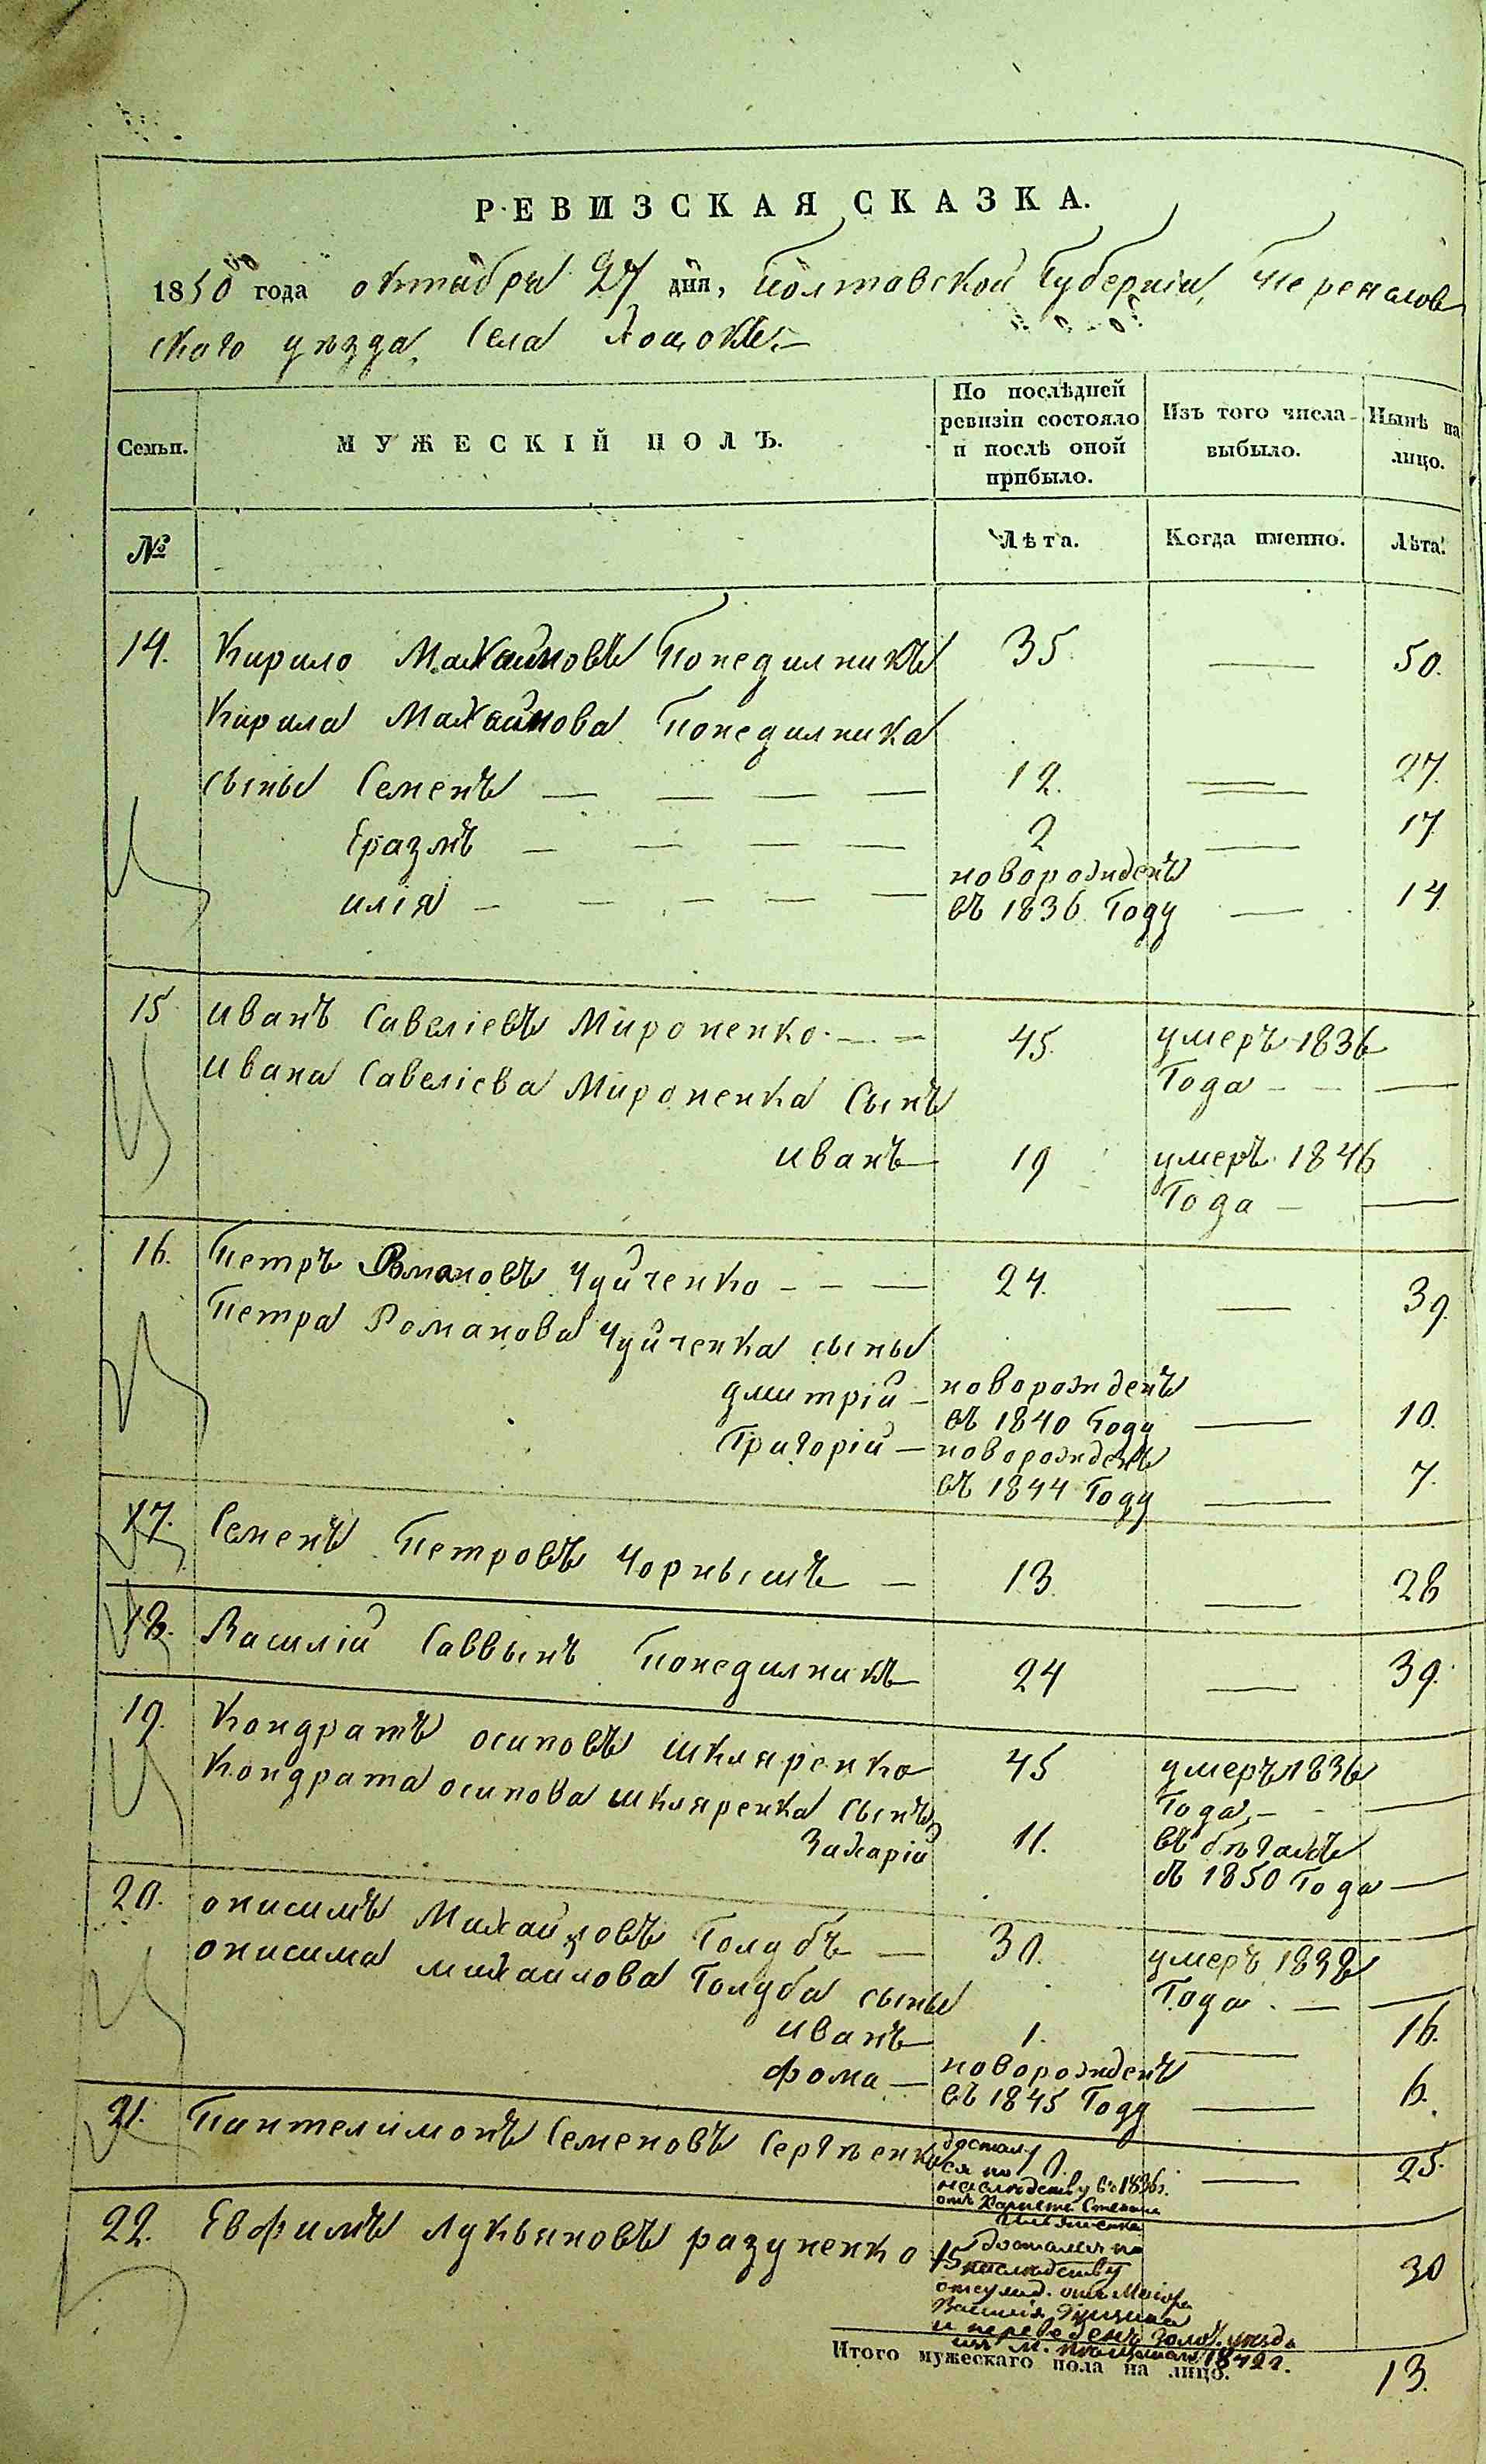 РЕВИЗСКАЯ СКАЗКА.
1850 года октября 27 дня, Полтавской Губернии, Переяслов
ского уезда, Села
Семьи.
МУЖЕСКІЙ ПОЛЪ.
По послѣдней
ревизіи состояло
и послѣ оной
прибыло.
Изъ того числа
выбыло.
Нынѣ на
лицо.
№
Лѣта.
Когда именно.
Лѣта.
14. Кирило Михайловъ Понедилникъ 35 — 50.
Кирила Михайлова Понедилника
сыны Семенъ — — — — 12. — 27.
Еразмъ — — — — 2 — 17
илія — — — — — новорожденъ
въ 1836 Году — 14
15 иванъ Савеліевъ Мироненко — — 45. умеръ 1836
Года — — —
ивана Савеліева Мироненка Сынъ
иванъ — 19 умеръ 1846
Года — —
16. Петръ Романовъ Чуйченко — — — 24. — 39.
Петра Романова Чуйченка сыны
дмитрій — новорожденъ
въ 1840 Году — 10.
Григорій — новорожденъ
въ 1844 Году — 7.
17. Семенъ Петровъ Чорнышъ — 13 — 28
18. Василій Саввынъ Понедилникъ 24 — 39.
19. Кондратъ осиповъ шкляренко 45 умеръ 1836
Года, — —
Кондрата осипова шкляренка Сынъ
Захарій 11. въ бѣгахъ
съ 1850 Года —
20. онисимъ Михайловъ Голубъ — 30. умеръ 1838
Года. — —
онисима михайлова Голуба сыны
иванъ — 1. — 16.
фома — новорожденъ
въ 1845 Году — 6.
21. Пантелимонъ Семеновъ Сергѣенко достал 10. — 25.
ся по
наследству въ 1836 г.
отъ
22. Евфимъ Лукьяновъ разуненко 15 достался по 30
наследству
от Маіора
Василія
и переведенъ Золот. уезда
изъ м. 1842 г.
Итого мужескаго пола на лицо. 13.